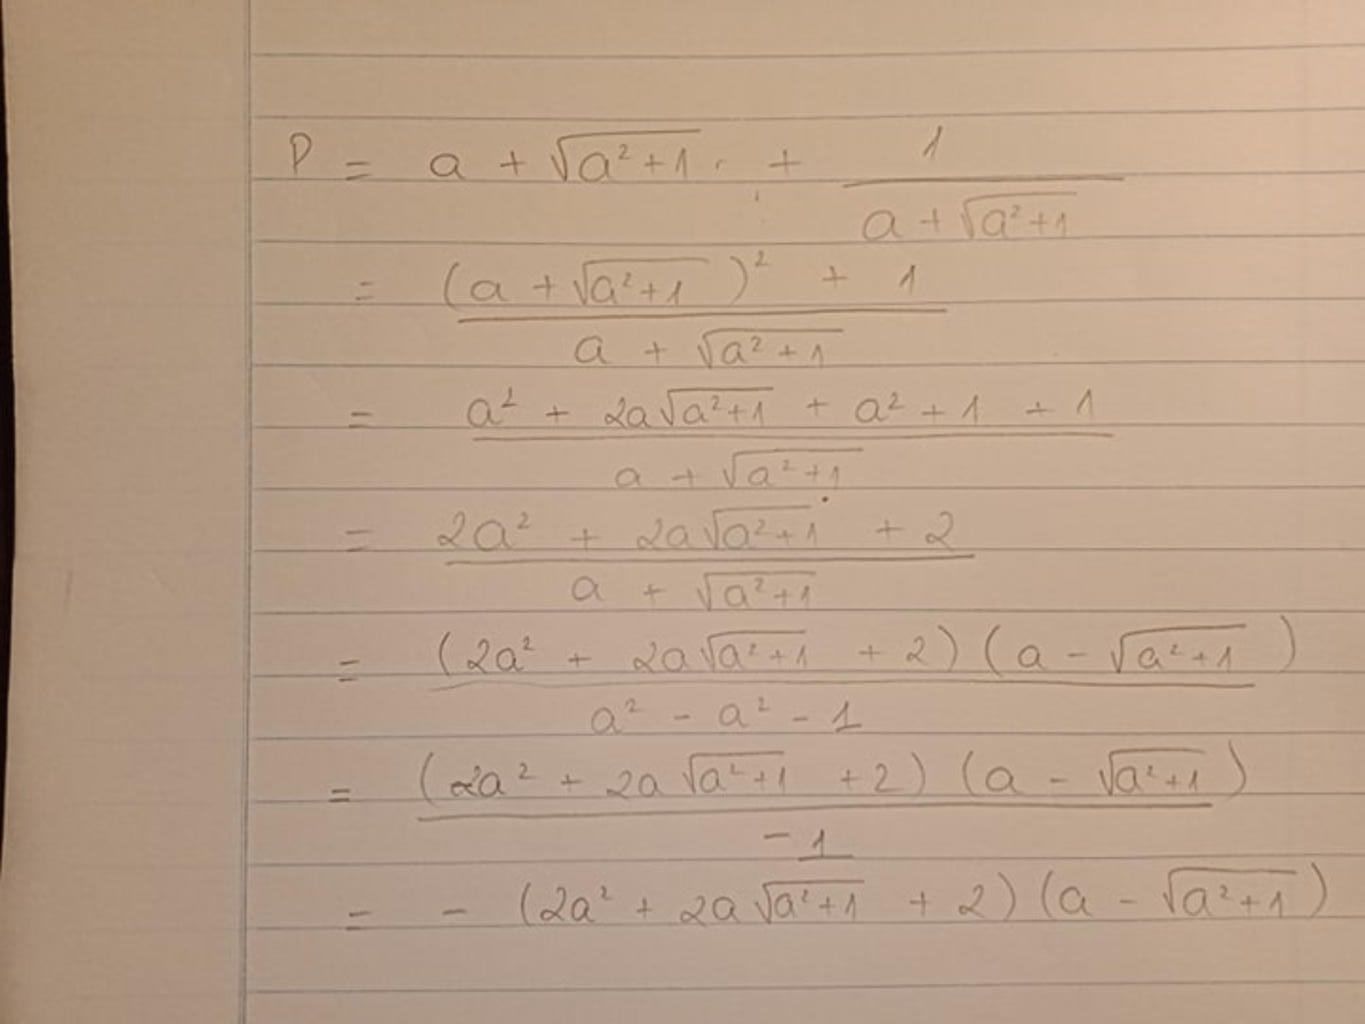 P = a + √(a² + 1) + 1 / (a + √(a² + 1))
= ((a + √(a² + 1))² + 1) / (a + √(a² + 1))
= (a² + 2a√(a² + 1) + a² + 1 + 1) / (a + √(a² + 1))
= (2a² + 2a√(a² + 1) + 2) / (a + √(a² + 1))
= (2a² + 2a√(a² + 1) + 2) (a - √(a² + 1)) / (a² - a² - 1)
= (2a² + 2a√(a² + 1) + 2) (a - √(a² + 1)) / (-1)
= - (2a² + 2a√(a² + 1) + 2) (a - √(a² + 1))